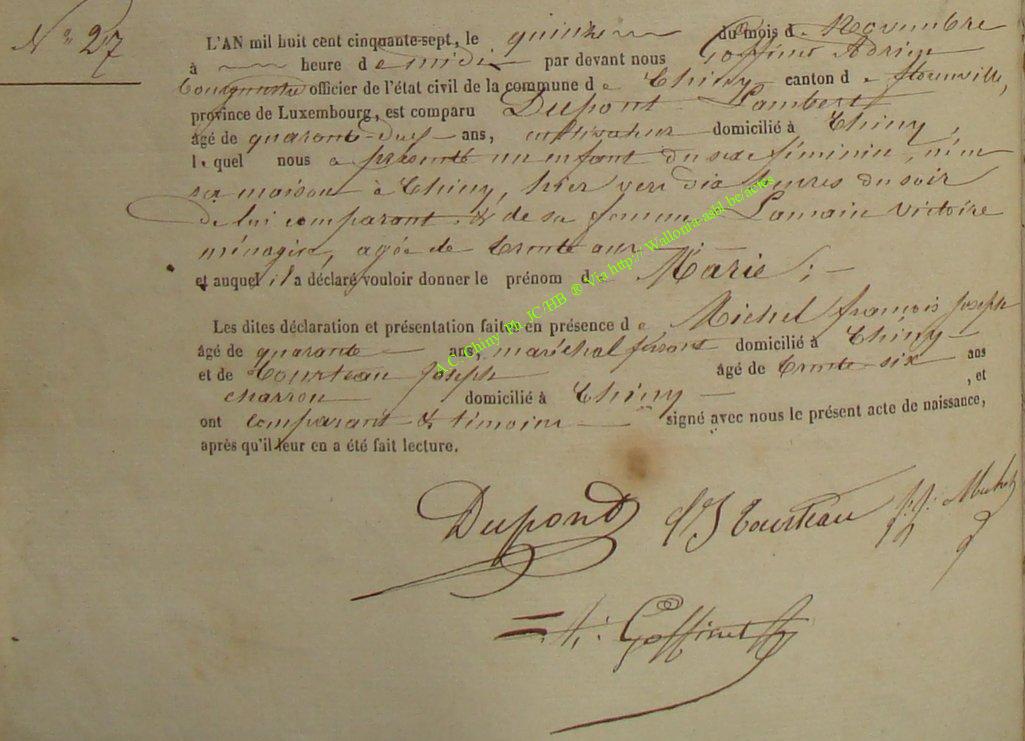 N° 27
L'AN mil huit cent cinquante-sept, le quinze du mois de Novembre
à heure de midi par devant nous Goffinet Adrien
Bourgmestre officier de l'état civil de la commune de Chiny canton de Florenville,
province de Luxembourg, est comparu Dupont Lambert
âgé de quarante-deux ans, cultivateur domicilié à Chiny,
lequel nous a présenté un enfant du sexe féminin, né en
sa maison à Chiny, hier vers dix heures du soir
de lui comparant & de sa femme Lamain Victoire
ménagère, agée de trente ans
et auquel il a déclaré vouloir donner le prénom de Marie; —
Les dites déclaration et présentation faites en présence de Michel françois Joseph
âgé de quarante — ans, maréchal ferrant domicilié à Chiny —
et de Tourteau Joseph âgé de trente-six ans
charron domicilié à Chiny — , et
ont comparant & témoins — signé avec nous le présent acte de naissance,
après qu'il leur en a été fait lecture.
Dupond Tourteau f.J. Michel
A. Goffinet
A.C. Chiny Ph. JC/HB ® Via http://Wallonia-asbl.be/actes